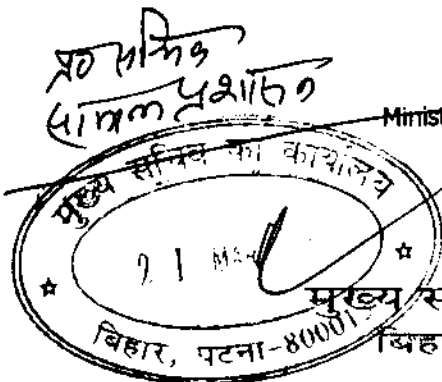 प्र० सचिव
सामान्य प्रशासन
Minist
मुख्य सचिव का कार्यालय
21 MAR
बिहार, पटना-80001
मुख्य स
बिह